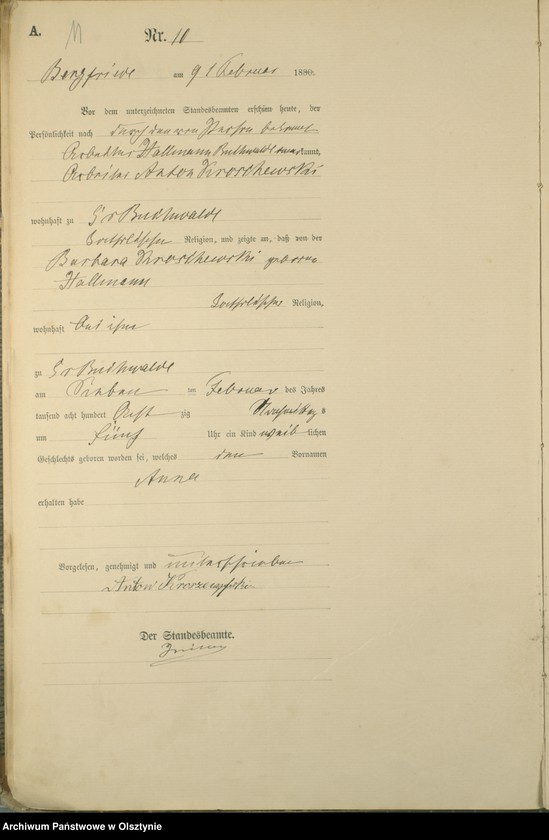 A. 11
Nr. 10
Bergfriede am 9 Februar 1880.
Vor dem unterzeichneten Standesbeamten erschien heute, der
Persönlichkeit nach durch den von Person bekannt
Arbeiter Hallmann Buchwalde kannt,
Arbeiter Anton Kroschewski
wohnhaft zu Gr Buchwalde
katholischer Religion, und zeigte an, daß von der
Barbara Kroschewski geborene
Hallmann
katholischer Religion,
wohnhaft bei ihm
zu Gr Buchwalde
am Sieben ten Februar des Jahres
tausend acht hundert Acht zig Nachmittags
um fünf Uhr ein Kind weib lichen
Geschlechts geboren worden sei, welches den Vornamen
Anna
erhalten habe
Vorgelesen, genehmigt und unterschrieben
Anton
Der Standesbeamte.
Archiwum Państwowe w Olsztynie